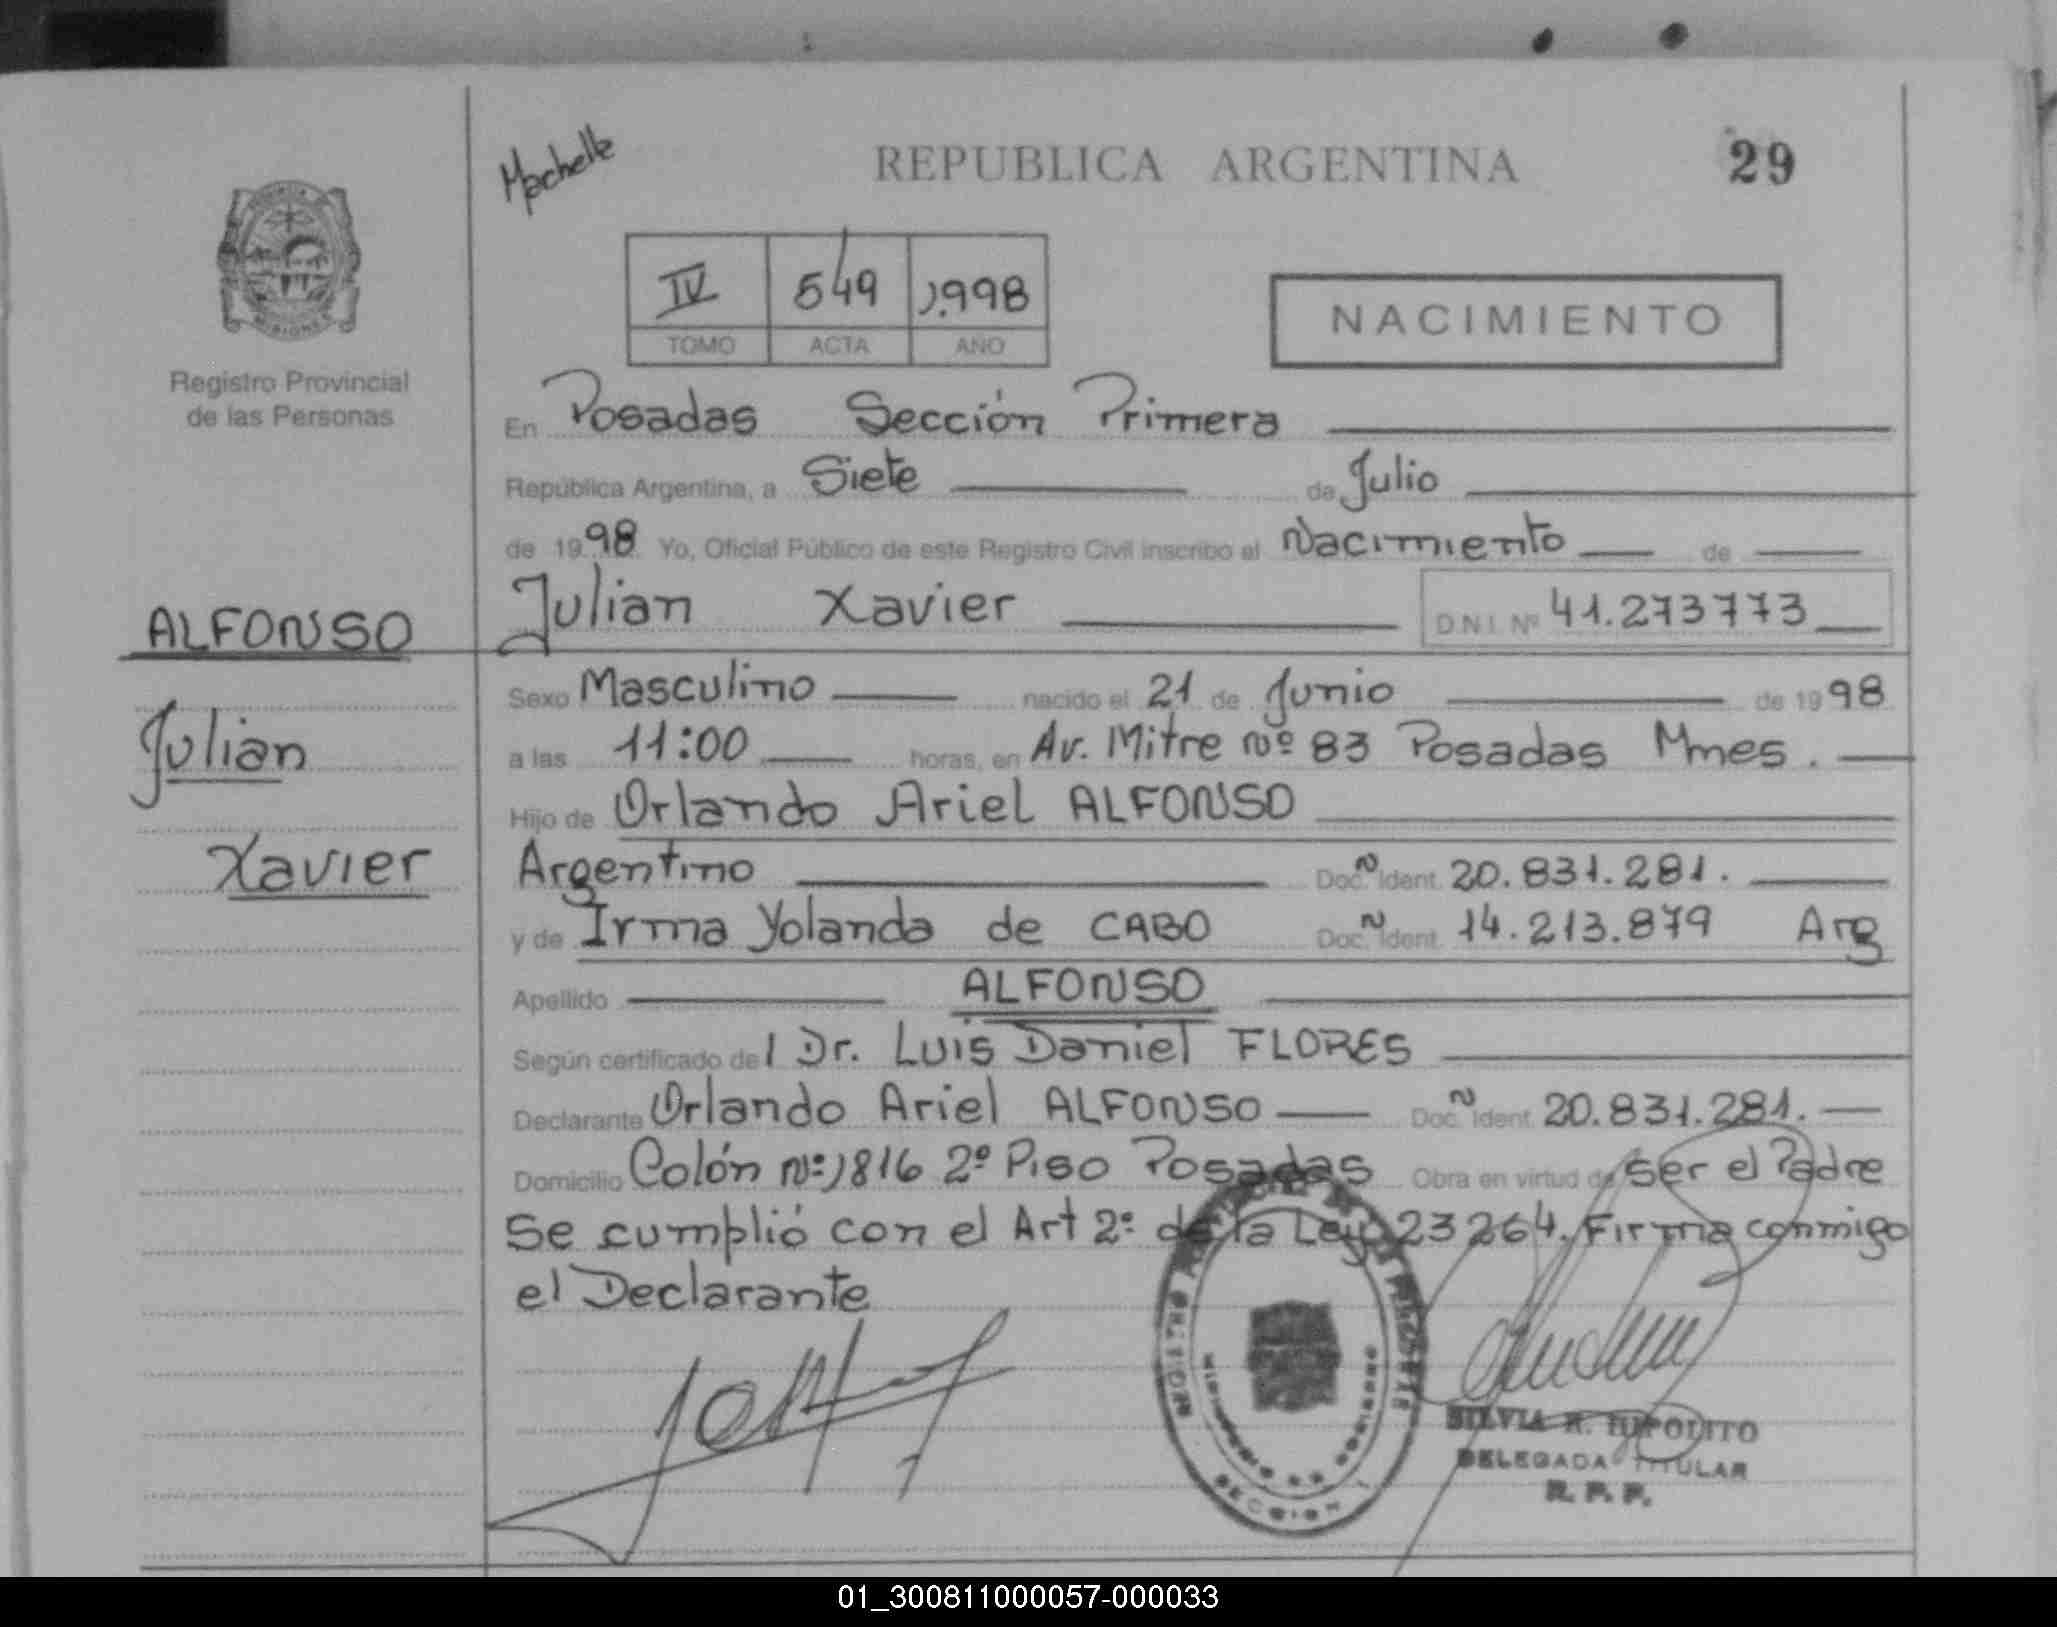 REPUBLICA ARGENTINA
29
IV 549 1.998
TOMO ACTA AÑO
NACIMIENTO
Registro Provincial
de las Personas
En Posadas Sección Primera
República Argentina, a Siete de Julio
de 1998 Yo, Oficial Público de este Registro Civil inscribo el Nacimiento de
Julian Xavier D.N.I. Nº 41.273773
ALFONSO
Julian
Xavier
Sexo Masculino nacido el 21 de Junio de 1998
a las 11:00 horas, en Av. Mitre Nº 83 Posadas Mnes.
Hijo de Orlando Ariel ALFONSO
Argentino Doc. Ident. 20.831.281.
y de Irma Yolanda de CABO Doc. Ident. 14.213.879 Arg
Apellido ALFONSO
Según certificado del Dr. Luis Daniel FLORES
Declarante Orlando Ariel ALFONSO Doc. Ident. 20.831.281.
Domicilio Colón Nº 1816 2º Piso Posadas Obra en virtud de ser el Padre
Se cumplió con el Art 2º de la Ley 23264. Firma conmigo
el Declarante
SILVIA R. HIPOLITO
DELEGADA TITULAR
R. P. P.
SECCION 1
01_300811000057-000033